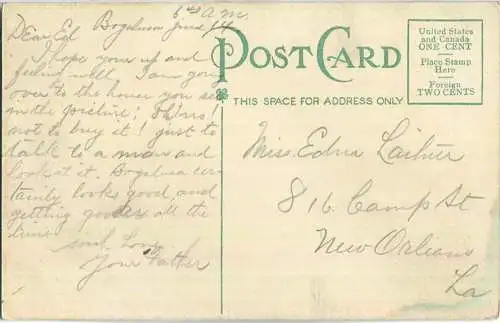 6 40 A.M.
Dear Ed Bogalusa June 14
I hope your up and
feeling well, I am going
over to the house you see
in the picture;
not to buy it! just to
talk to a man and
look at it. Bogalusa cer-
tainly looks good and
getting gooder all the
time.
much Love.
Your Father
POST CARD
THIS SPACE FOR ADDRESS ONLY
United States
and Canada
ONE CENT
Place Stamp
Here
Foreign
TWO CENTS
Miss. Edna
816 Camp St
New Orleans
La